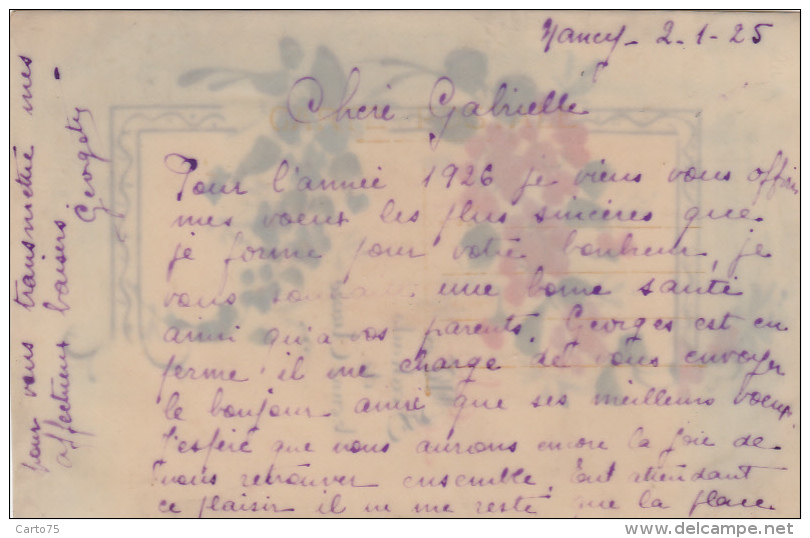 Nancy - 2-1-25
Chère Gabrielle
Pour l'année 1926 je viens vous offrir
mes voeux les plus sincères que
je forme pour votre bonheur, je
vous souhaite une bonne santé
ainsi qu'à vos parents. Georges est en
ferme il me charge de vous envoyer
le bonjour ainsi que ses meilleurs voeux
J'espère que nous aurons encore la joie de
nous retrouver ensemble, tout attendant
ce plaisir il ne me reste que la place
pour vous transmettre mes
affectueux baisers -
Georgety
Carto75
www.delcampe.net